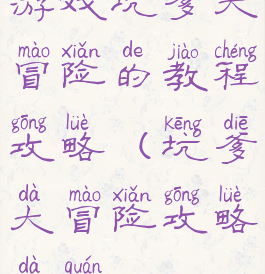 游戏坑爹大
mào xiǎn de jiào chéng
冒险的教程
gōng lüè kēng diē
攻略(坑爹
dà mào xiǎn gōng lüè
大冒险攻略
dà quán